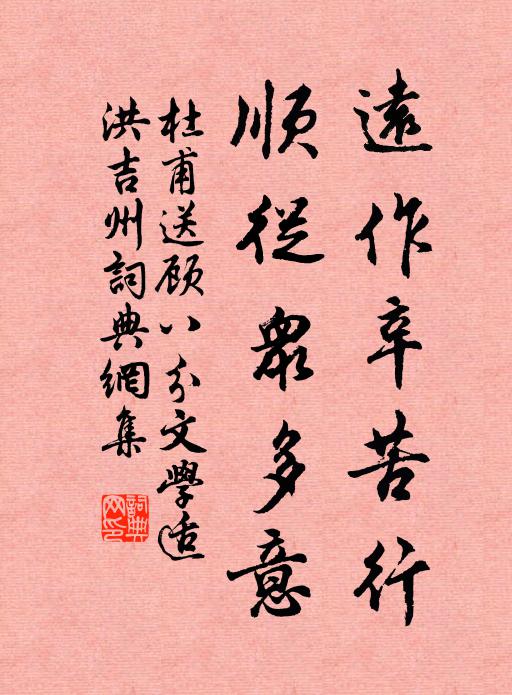 遠作辛苦行
順從衆多意
杜甫送顾八分文學适
洪吉州詞典網集
詞典网印